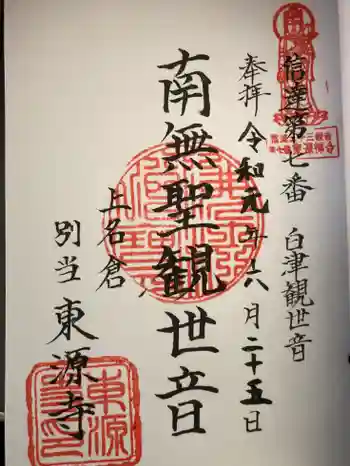 信達第七番 白津観世音
奉拝 令和元年六月二十五日
南無聖観世音
上名倉
別当 東源寺
東源